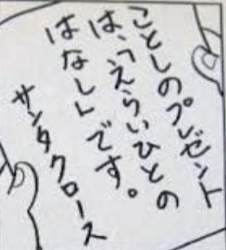 ことしのプレゼント
は、「えらいひとの
はなし」です。
サンタクロース